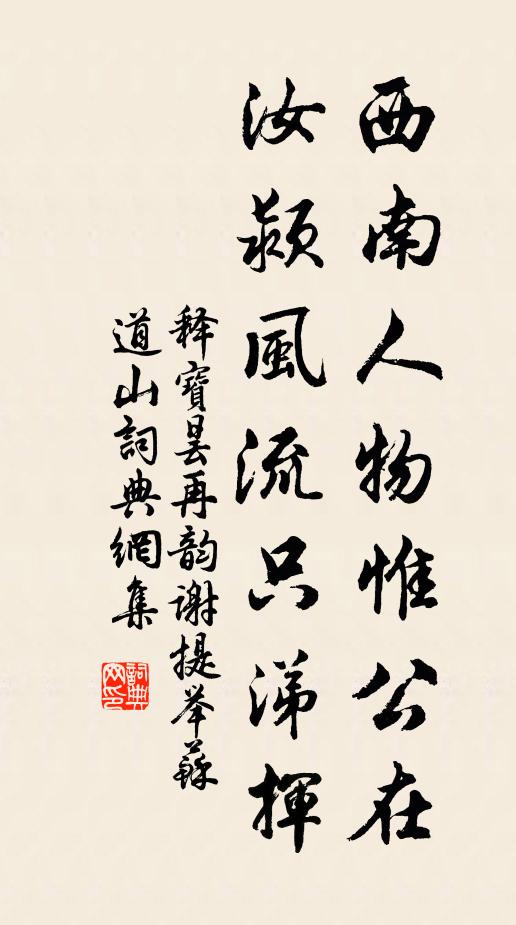 西南人物惟公在
汝颍風流只涕揮
释寶曇再韵谢提举蘇
道山詞典網集
詞典网印